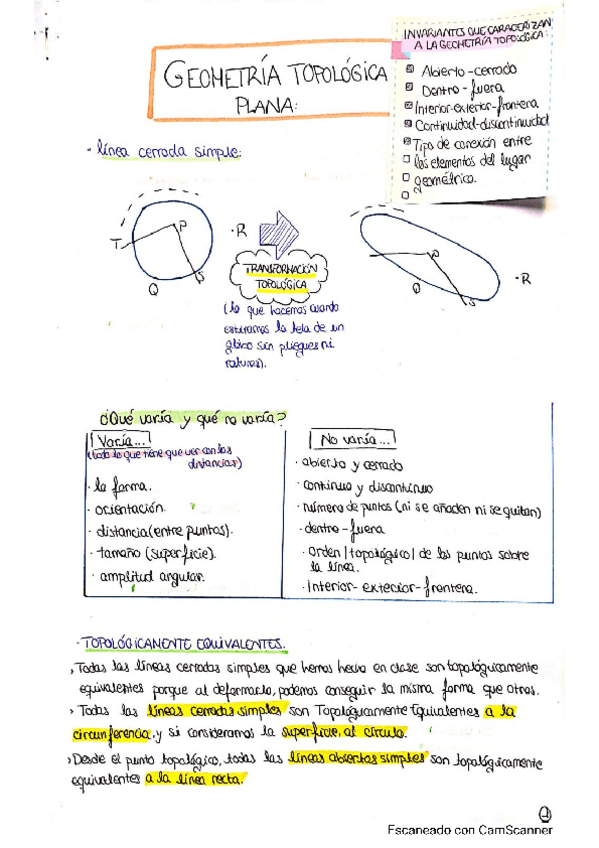 INVARIANTES QUE CARACTERIZAN
A LA GEOMETRÍA TOPOLÓGICA:
Abierto-cerrado
Dentro-fuera
Interior-exterior-frontera
Continuidad-discontinuidad
Tipo de conexión entre
los elementos del lugar
geométrico.
GEOMETRÍA TOPOLÓGICA
PLANA:
· línea cerrada simple:
T
P
S
Q
·R
TRANSFORMACIÓN
TOPOLÓGICA
(lo que hacemos cuando
estiramos la tela de un
globo sin pliegues ni
roturas).
P
Q
S
·R
¿Qué varía y qué no varía?
Varía...
(todo lo que tiene que ver con las
distancias)
· la forma.
· orientación.
· distancia (entre puntos).
· tamaño (superficie).
· amplitud angular.
No varía...
· abierto y cerrado
· continuo y discontinuo
· número de puntos (ni se añaden ni se quitan)
· dentro-fuera
· Orden |topológico| de los puntos sobre
la línea.
· Interior-exterior-frontera.
· TOPOLÓGICAMENTE EQUIVALENTES.
› Todas las líneas cerradas simples que hemos hecho en clase son topológicamente
equivalentes porque al deformarlo, podemos conseguir la misma forma que otros.
› Todas las líneas cerradas simples son Topológicamente Equivalentes a la
circunferencia, y si consideramos la superficie, al círculo.
› Desde el punto topológico, todas las líneas abiertas simples son topológicamente
equivalentes a la línea recta.
1
Escaneado con CamScanner